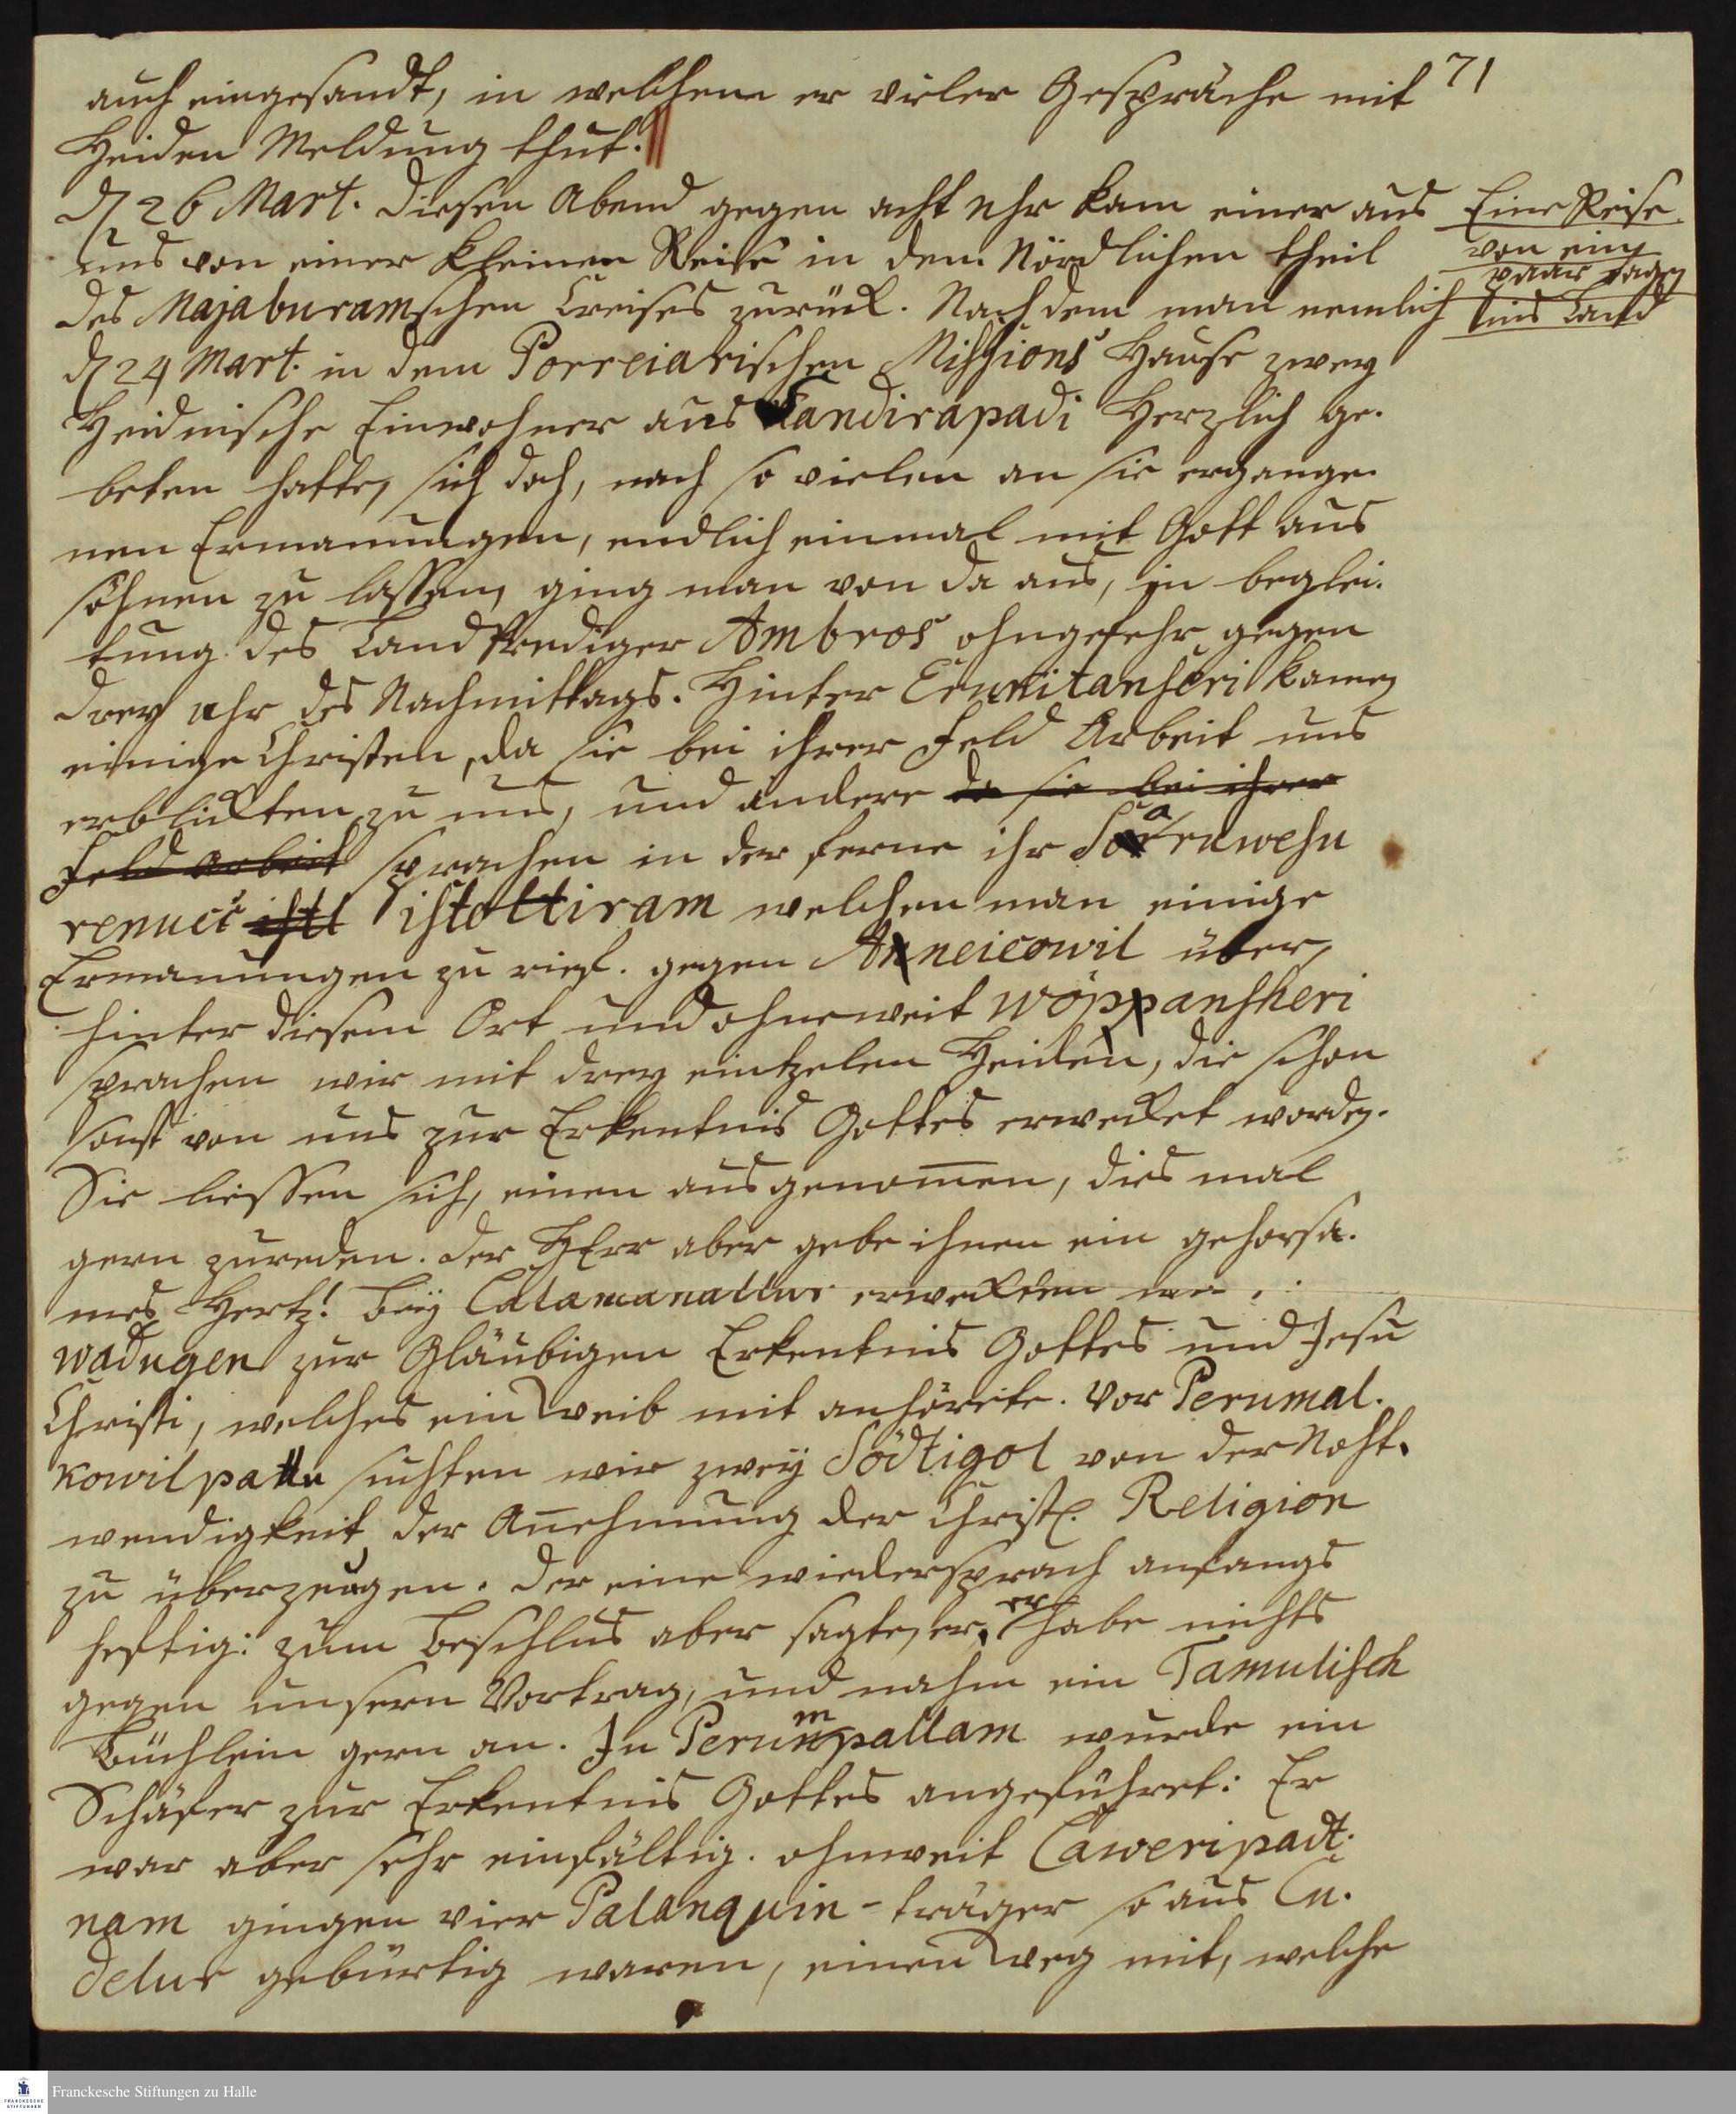 71
auch eingesandt, in welchem er vieler Gespräche mit
Heiden Meldung thut.
d 26 Mart. Diesen Abend gegen acht Uhr kam einer aus
uns von einer kleinen Reise in dem Nördlichen theil
des Majaburamschen Creises zurück. Nachdem man nemlich
d 24 Mart. in dem Porreiarischen Missions Hause zwey
Heidnische Einwohner aus Sandirapadi Herzlich ge-
beten hatte, sich doch, nach so vielen an sie ergange-
nen Ermanungen, endlich einmal mit Gott aus
söhnen zu lassen, ging man von da aus, in beglei-
tung des Landprediger Ambros ohngefehr gegen
drey Uhr des Nachmittags. Hinter kamen
einige Christen, da sie bei ihrer Feld Arbeit uns
erblickten zu uns, und andere da sie bei ihrer
Feld Arbeit sprachen in der ferne ihr
istottiram welchen man einige
Ermanungen zu rief. gegen Anneicowil über,
hinter diesem Ort und ohneweit Wöppansheri
sprachen wir mit drey eintzelen Heiden, die schon
sonst von uns zur Erkentnis Gottes erwecket worden.
Sie liessen sich, einen ausgenom̄en, dies mal
gern zureden. Der HErr aber gebe ihnen ein gehorsa-
mes Hertz! Bey erweckten
Wadugen zur Gläubigen Erkentnis Gottes und Jesu
Christi, welches ein Weib mit anhörete. Vor Perumal-
kowilpattu suchten wir zwey Södtigol von der Noht-
wendigkeit der An̄ehmung der Christl. Religion
zu überzeugen. Der eine wiedersprach anfangs
heftig: zum Beschlus aber sagte, er, er habe nichts
gegen unsern Vortrag, und nahm ein Tamulisch
Büchlein gern an. In Perumpallam wurde ein
Schäfer zur Erkentnis Gottes angeführet: Er
war aber sehr einfältig. ohnweit Caweripadt-
nam gingen vier Palanquin-träger so aus Cu-
delur gebürtig waren, einen Weg mit, welche
Eine Reise
von ein
paar Tagen
ins Land
Franckesche Stiftungen zu Halle
FRANCKESCHE STIFTUNGEN